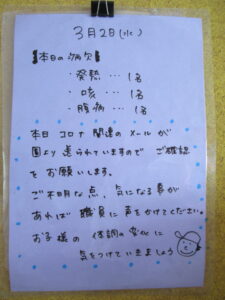 3月2日(水)
【本日の病欠】
・発熱…1名
・咳…1名
・腹痛…1名
本日コロナ関連のメールが
園より送られていますので ご確認
をお願いします。
ご不明な点、気になる事が
あれば 職員に声をかけてください。
お子様の 体調の変化に
気をつけていきましょう